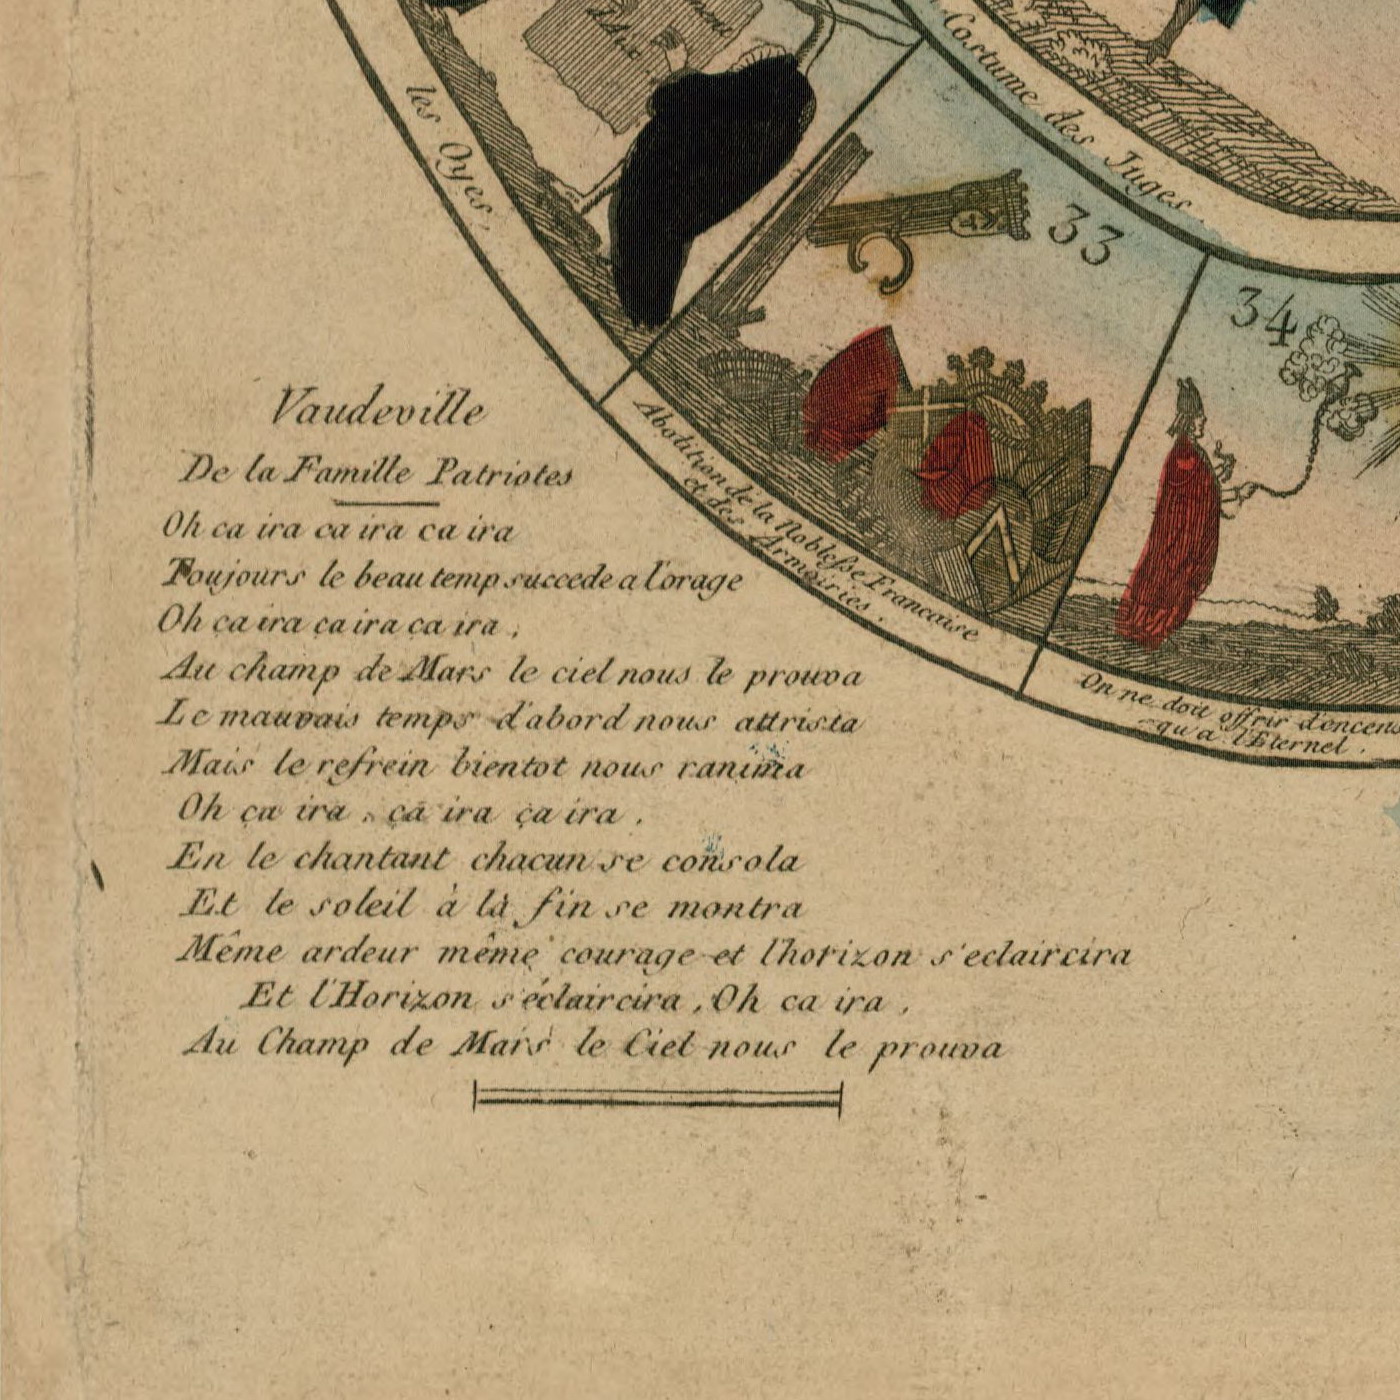 les Oyes.
Costume des Juges.
33
34
Abolition de la Noblesse Francaise
et des Armoiries.
On ne doit offrir d'encens
qu'a l'Eternel.
Vaudeville
De la Famille Patriotes
Oh ca ira ca ira ca ira
Toujours le beau temp succede a l'orage
Oh ca ira ca ira ca ira,
Au champ de Mars le ciel nous le prouva
Le mauvais temps d'abord nous attrista
Mais le refrein bientot nous ranima
Oh ça ira, ça ira ça ira.
En le chantant chacun se consola
Et le soleil à la fin se montra
Même ardeur même courage et l'horizon s'eclaircira
Et l'Horizon s'éclaircira, Oh ca ira,
Au Champ de Mars le Ciel nous le prouva